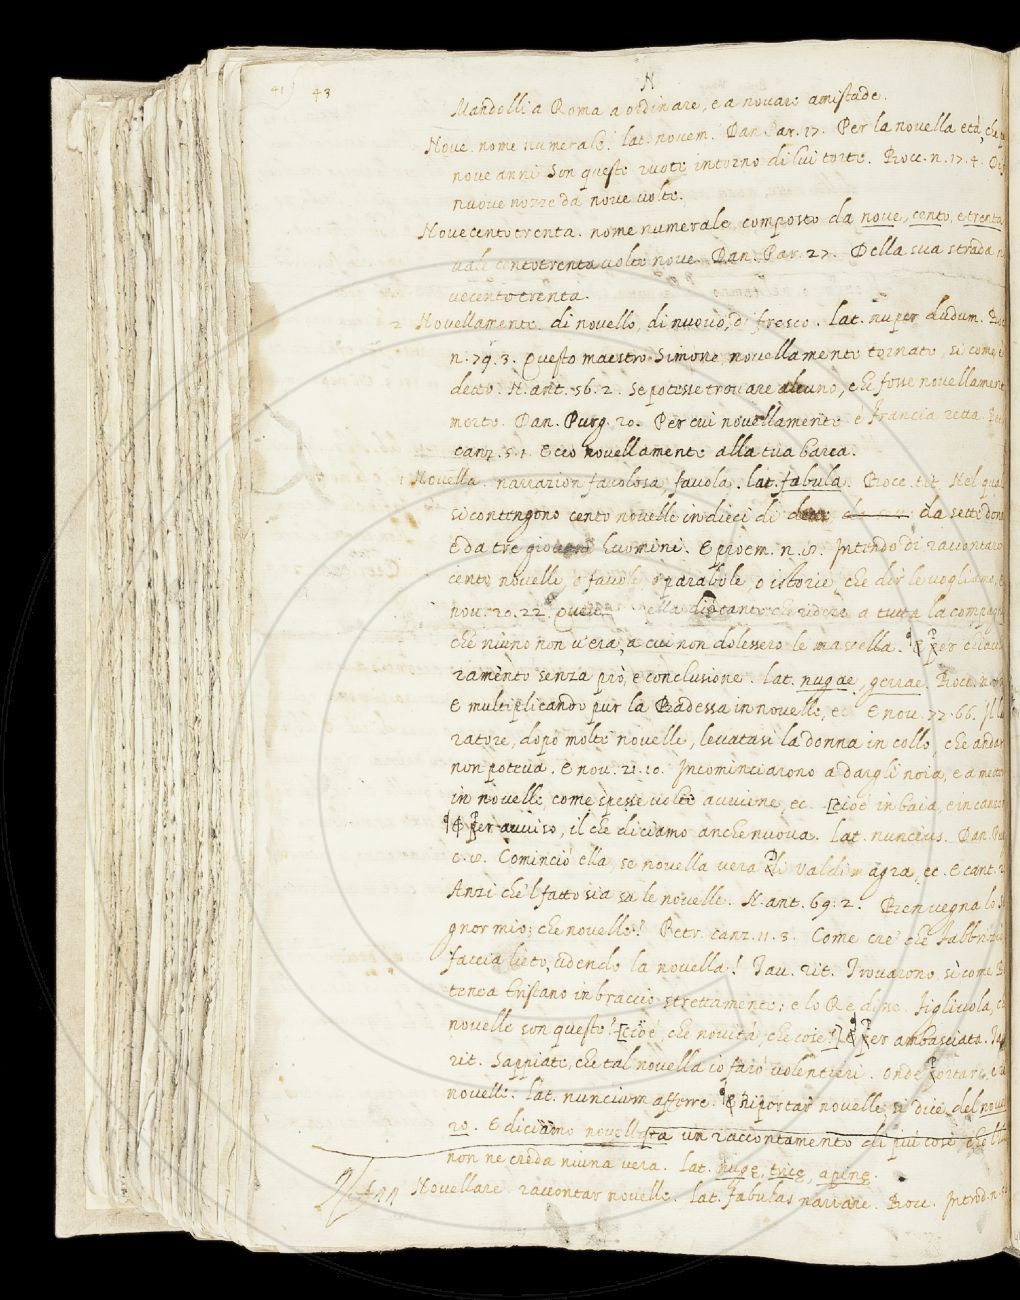 41 43
N
Mandolli a Roma a ordinare, e a novare amistade.
Nove. nome numerale. lat. novem. Dan. Par. 17. Per la novella età, che
nove anni Son queste ruote intorno di lui torte. Bocc. n. 17. 4.
nuove nozze da nove volte.
Novecentotrenta. nome numerale, composto da nove, cento, e trenta
vale centotrenta volte nove. Dan. Par. 27. Della sua strada
vecentotrenta.
2 Novellamente. di novello, di nuovo, di fresco. Lat. nuper dudum.
n. 79. 3. Questo maestro Simone, novellamente tornato, sì come
detto. N. ant. 56. 2. Se potesse trovare alcuno, che fosse novellament
morto. Dan. Purg. 20. Per cui novellamente è Francia retta.
canz. 5. 1. Ecco novellamente alla tua barca.
1 Novella. narrazion favolosa, favola. lat. fabula. Bocc. tit. Nel qual
si contengono cento novelle in dieci dì da sette don
E da tre giovani huomini. E proem. n. Intendo di raccontare
cento novelle, o favole o parabole, o istorie, che dir le vogliamo,
nov. 20. 22. ella diè tanto che ridere a tutta la compagn
che niuno non v'era, a cui non dolessero le mascella. E per
ramento senza prò, e conclusione. lat. nugae, gerrae. Bocc.
E multiplicando pur la Badessa in novelle, ec. E nov. 77. 66. Il la
ratore, dopo molte novelle, levatasi la donna in collo, che andar
non poteva. E nov. 21. 10. Incominciarono a dargli noia, e a mett
in novelle, come spesse volte avviene, ec. [cioè in baia, e in canzon
E per avviso, il che diciamo anche nuova. Lat. nuncius. Dan. Pur
c. 8. Cominciò ella, se novella vera Di Valdimagra, ec. E cant. 2
Anzi che 'l fatto sia sa le novelle. N. ant. 69. 2. Ben vegna lo S
gnor mio; che novelle? Petr. canz. 11. 3. Come cre' che Fabbrizio
faccia lieto, udendo la novella! Tav. rit. Trovarono, sì come
tenea Tristano in braccio strettamente; e lo Re disse. Figliuola, c
novelle son queste? [cioè, che novità, che cose?] E per ambasciata. Ta
rit. Sappiate, che tal novella io farò volentieri. onde portare,
novelle. lat. nuncium afferre. E riportar novelle, si dice del nov
20. E diciamo novellata un raccontamento di più cose che
non ne creda niuna vera. lat. nugę, tricę, apinę.
Novellare. raccontar novelle. lat. fabulas narrare. Bocc. Introd. n.